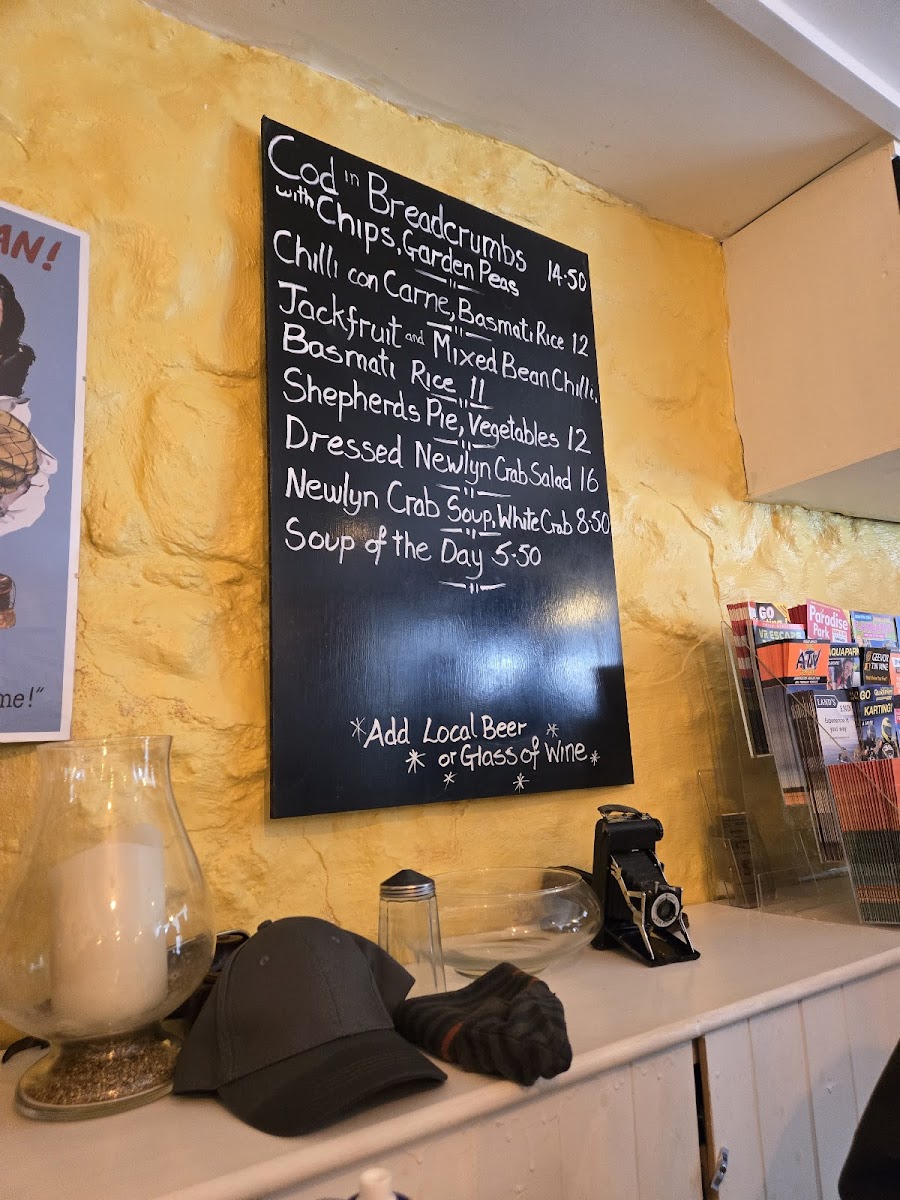 Cod in Breadcrumbs
with Chips, Garden Peas 14.50
Chilli con Carne, Basmati Rice 12
Jackfruit and Mixed Bean Chilli,
Basmati Rice 11
Shepherds Pie, Vegetables 12
Dressed Newlyn Crab Salad 16
Newlyn Crab Soup, White Crab 8.50
Soup of the Day 5.50
*Add Local Beer *
* or Glass of Wine *
AN!
me!"
GO
VR ESCAPE
Paradise
Park
ATV
AQUAPARK
GEEVOR
TIN MINE
GO
KARTING!
LAND'S END